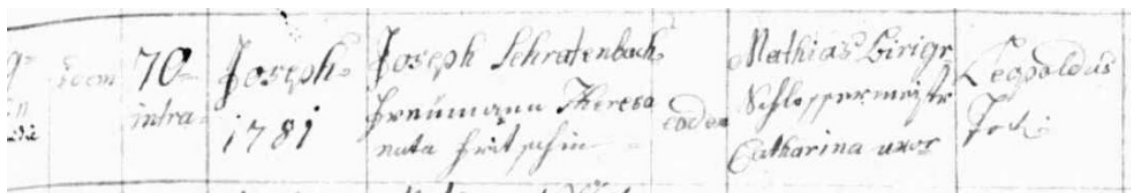 eodem
70
intra
Joseph
1781
Joseph Schratenbach
Theresa
nata Fritschin
eodem
Mathias Girigr
Schlossermeistr
Catharina uxor
Leopoldus